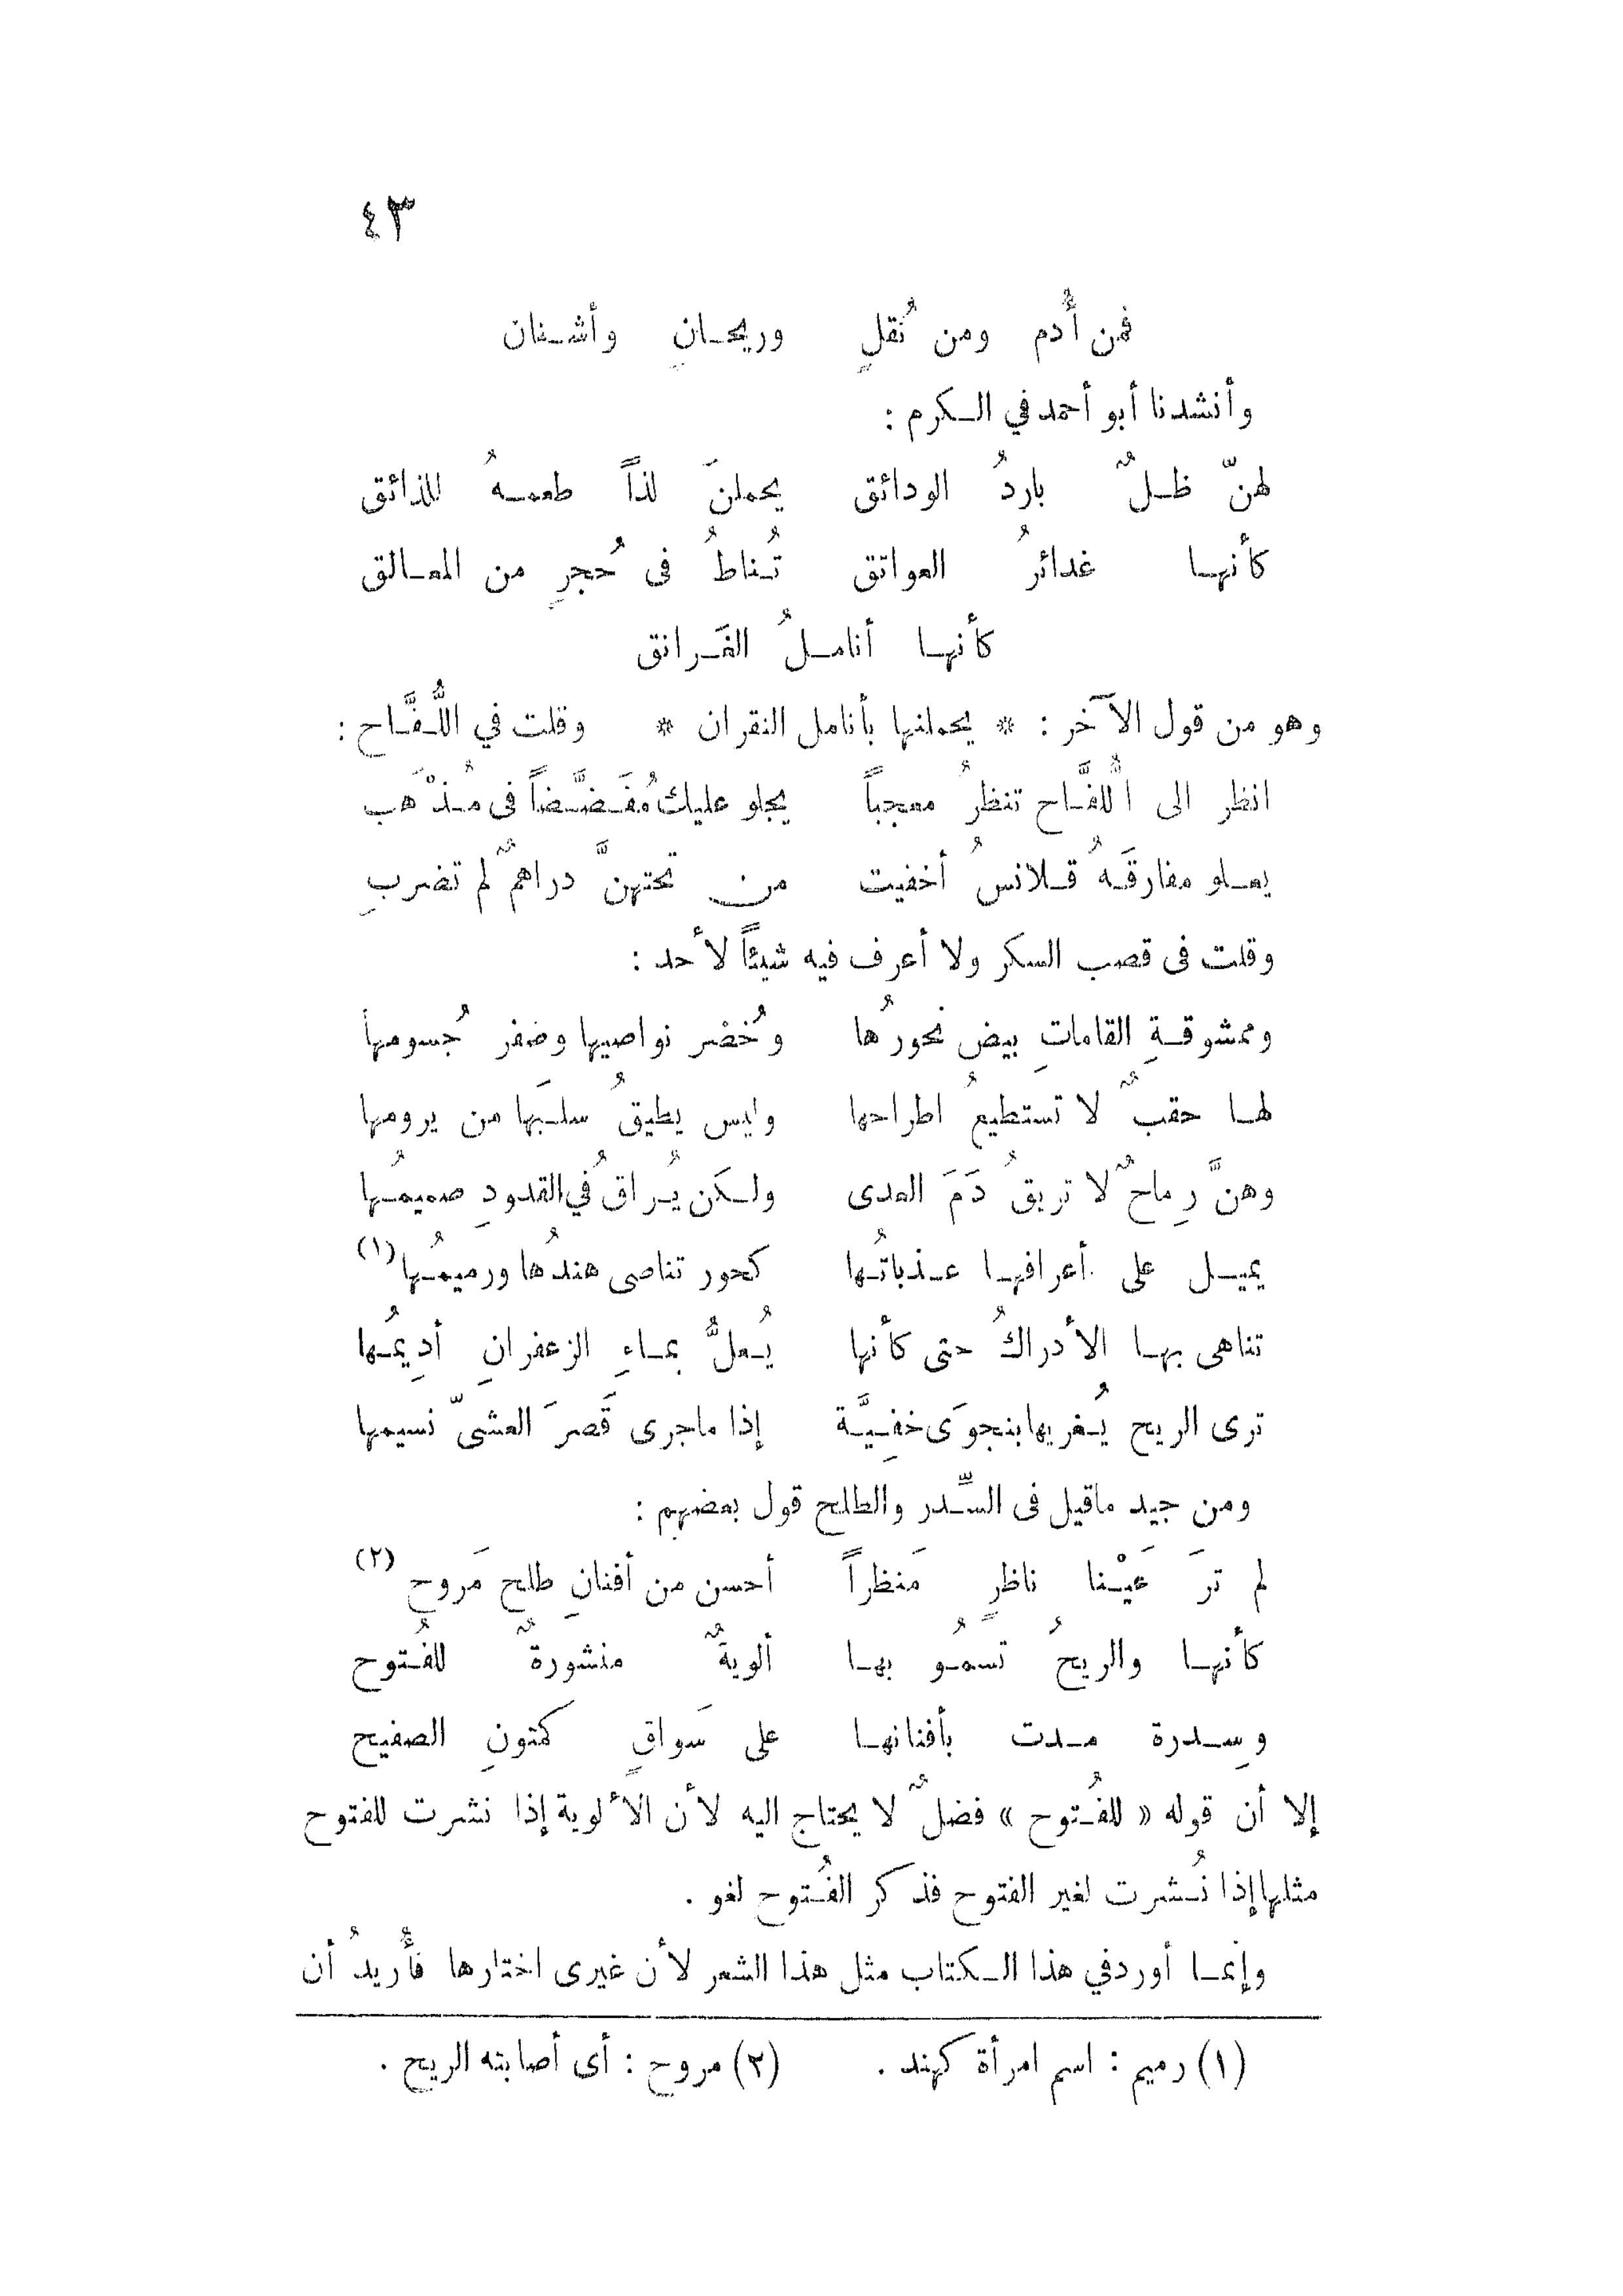 ٤٣
فمن أُدم ومن نُقلٍ وريحـانٍ وأشـنان
وأنشدنا أبو أحمد في الـكرم :
لهنّ ظـلٌ باردُ الودائق يحملنَ لذاً طعمـهُ للذائق
كأنهـا غدائرُ العواتق تُـناطُ فى حُجرٍ من المعـالق
كأنهـا أنامـلُ الغَـرانق
وهو من قول الآخر : * يحملنها بأنامل النغران * وقلت في اللُّـفَّـاح :
انظر الى اللُّفَّـاح تنظرُ معجباً يجلو عليك مُفَـضَّـضاً فى مُـذْهَب
يعـلو مفارقَـهُ قـلانسُ أخفيت من تحتهنَّ دراهمٌ لم تضربِ
وقلت فى قصب السكر ولا أعرف فيه شيئاً لأحد :
وممشوقـةِ القاماتِ بيض نحورُها وخُضْر نواصيها وصفر جُسومها
لهـا حقبٌ لا تستطيعُ اطراحها وليس يطيقُ سلـبَها من يرومها
وهنَّ رِماحٌ لا تريقُ دَمَ العدى ولـكن يُـراقُ في القدودِ صميمُـها
يميـل على أعرافهـا عـذباتُـها كحور تناصى هندُها ورميمُـها (١)
تناهى بهـا الأدراكُ حتى كأنها يُـعلُّ بمـاءِ الزعفرانِ أدِيمُـها
ترى الريح يُـغريها بنجوَى خفِـيَّـة إذا ما جرى قَصرَ العشىّ نسيمها
ومن جيد ماقيل فى السِّـدر والطلح قول بعضهم :
لم ترَ عَيْـنا ناظرٍ مَنظراً أحسن من أفنانِ طلح مَروح (٢)
كأنهـا والريحُ تسمُـو بهـا ألويةٌ منشورةٌ للفُـتوح
وسِـدرة مـدت بأفنانهـا على سَواقٍ كمتونِ الصفيح
إلا أن قوله « للفُـتوح » فضلٌ لا يحتاج اليه لأن الألوية إذا نشرت للفتوح
مثلها إذا نُـشرت لغير الفتوح فذكر الفُـتوح لغو .
وإنمـا أورد في هذا الـكتاب مثل هذا الشعر لأن غيرى اختارها فأُريدُ أن
(١) رميم : اسم امرأة كهند . (٢) مروح : أى أصابته الريح .